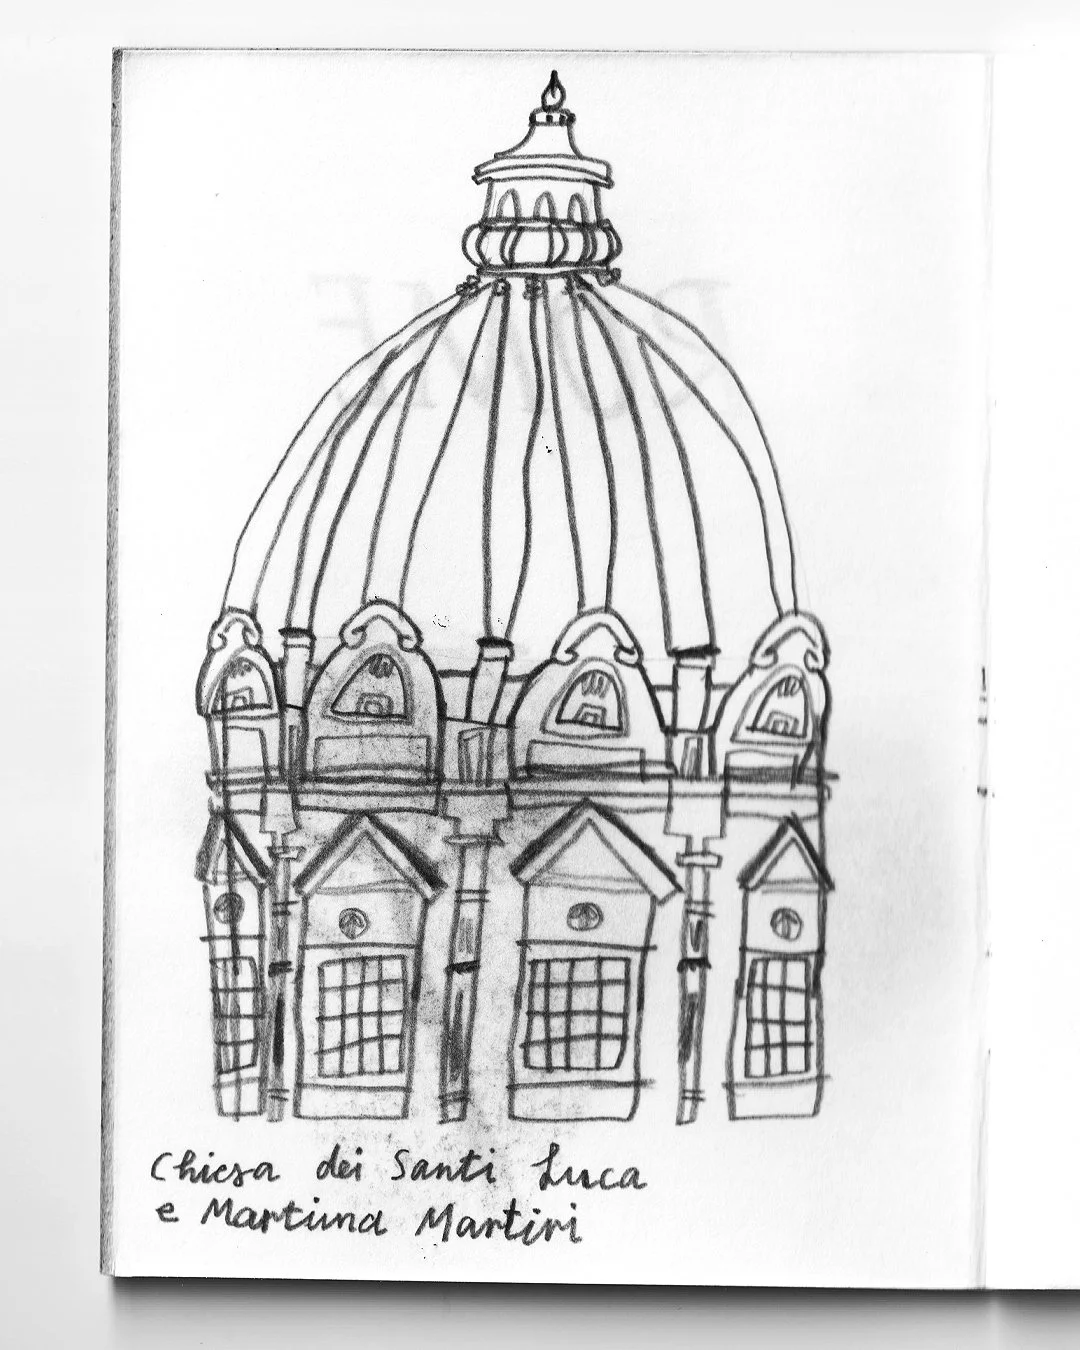 Chiesa dei Santi Luca
e Martina Martiri
ROME